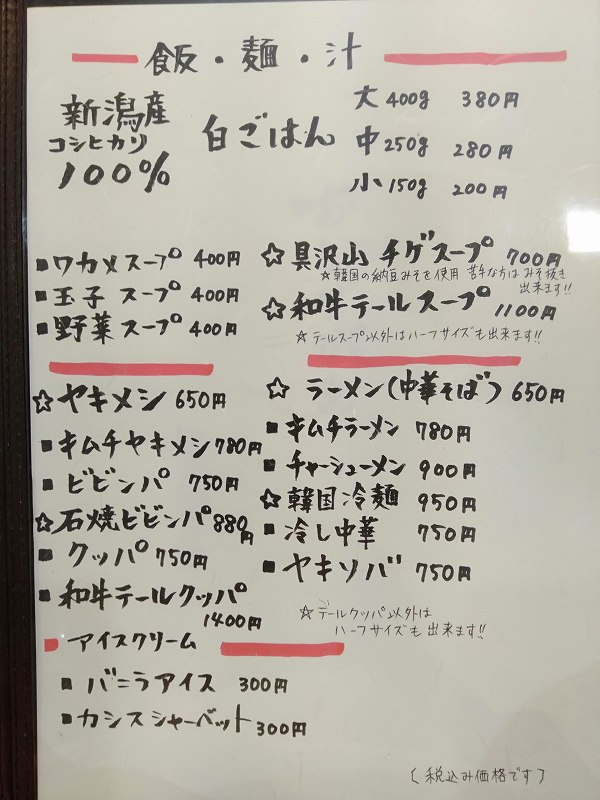 飯・麺・汁
新潟産
コシヒカリ
100%
白ごはん
大 400g 380円
中 250g 280円
小 150g 200円
■ワカメスープ 400円
■玉子スープ 400円
■野菜スープ 400円
☆具沢山チゲスープ 700円
☆韓国の納豆みそを使用 苦手な方はみそ抜き
出来ます!!
☆和牛テールスープ 1100円
☆テールスープ以外はハーフサイズも出来ます!!
☆ヤキメシ 650円
■キムチヤキメシ 780円
■ビビンバ 750円
☆石焼ビビンバ 880円
■クッパ 750円
■和牛テールクッパ
1400円
☆ラーメン(中華そば) 650円
■キムチラーメン 780円
■チャーシューメン 900円
☆韓国冷麺 950円
■冷し中華 750円
■ヤキソバ 750円
☆テールクッパ以外は
ハーフサイズも出来ます!!
アイスクリーム
■バニラアイス 300円
■カシスシャーバット 300円
(税込み価格です)